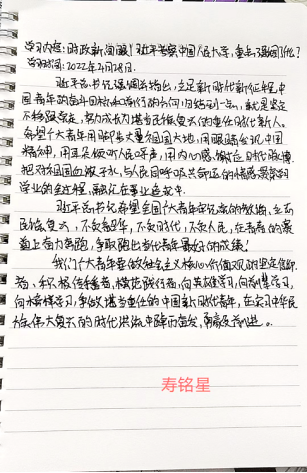 学习内容:时政新闻眼丨习近平考察中国人民大学,重点强调了什么?
学习时间:2022年4月28日.
习近平总书记强调并指出,立足新时代新征程,中
国青年的奋斗目标和前行的方向归结到一点,就是坚定
不移跟党走,努力成为堪当民族复兴的重任的时代新人。
希望广大青年用脚步丈量祖国大地,用眼睛发现中国
精神,用耳朵倾听人民呼声,用内心感应时代脉搏,
把对祖国血浓于水、与人民同呼吸共命运的情感贯穿到
学业的全过程、融汇在事业追求中.
习近平总书记希望全国广大青年牢记党的教诲,立志
民族复兴,不负韶华,不负时代,不负人民,在青春的赛
道上奋力奔跑,争取跑出当代青年最好的成绩!
我们广大青年要做社会主义核心价值观的坚定信仰
者、积极传播者、模范践行者,向英雄学习,向前辈学习,
向榜样学习,争做堪当重任的中国新时代青年,在实现中华民
族伟大复兴的时代洪流中踔厉奋发,勇毅前进。
寿铭星